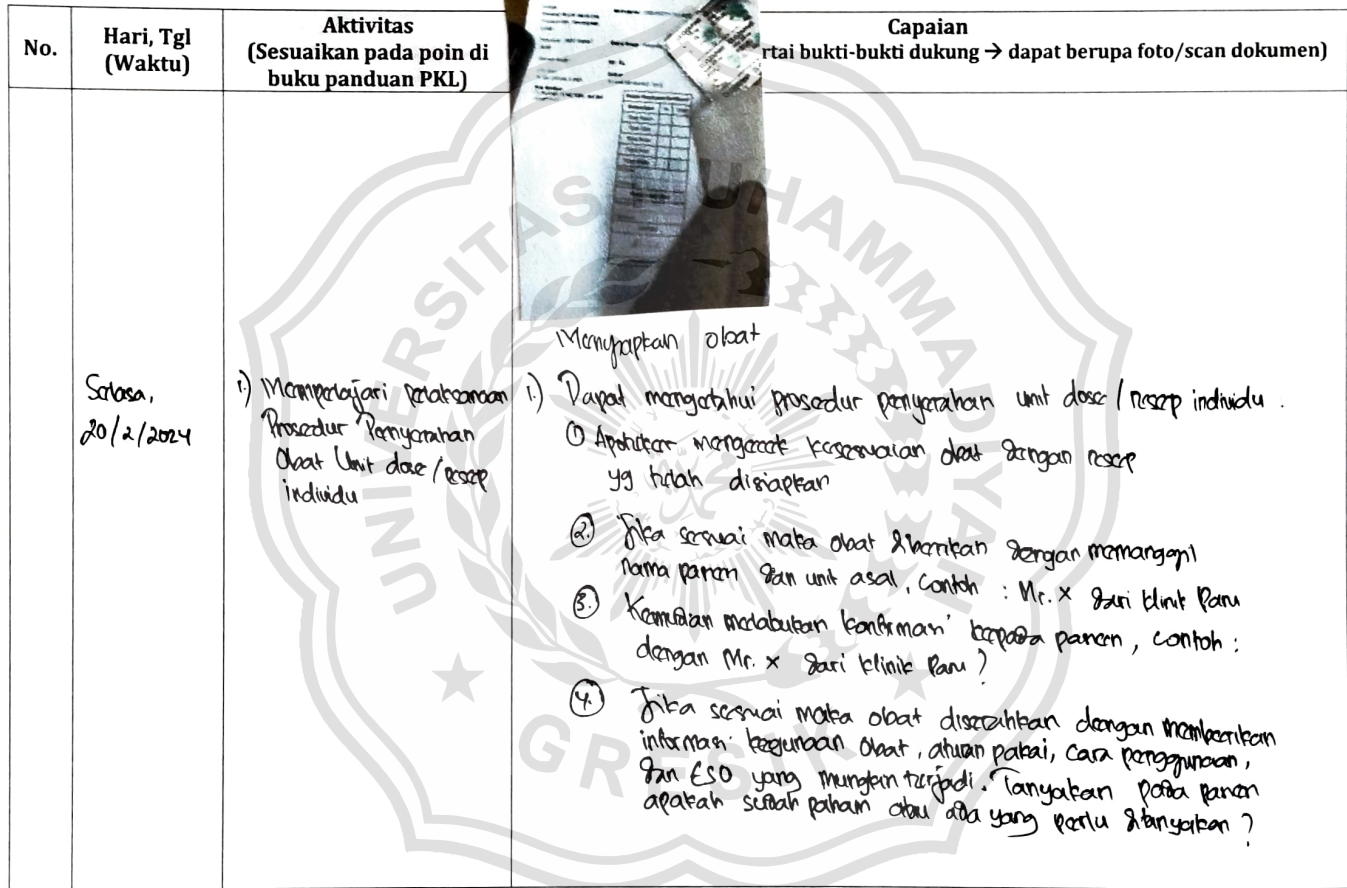 No.
Hari, Tgl
(Waktu)
Aktivitas
(Sesuaikan pada poin di
buku panduan PKL)
Capaian
rtai bukti-bukti dukung → dapat berupa foto/scan dokumen)
Menyiapkan obat
Selasa,
20/2/2024
1.) Mempelajari pelaksanaan
Prosedur Penyerahan
Obat Unit dose / resep
individu
1.) Dapat mengetahui prosedur penyerahan unit dose / resep individu.
① Apoteker mengecek kesesuaian obat dengan resep
yg telah disiapkan
②. Jika sesuai maka obat diberikan dengan memanggil
nama pasien dan unit asal, contoh : Mr. X dari klinik Paru
③. Kemudian melakukan konfirmasi kepada pasien, contoh :
dengan Mr. X dari klinik Paru ?
④. Jika sesuai maka obat diserahkan dengan memberikan
informasi kegunaan obat, aturan pakai, cara penggunaan,
dan ESO yang mungkin terjadi. Tanyakan pada pasien
apakah sudah paham atau ada yang perlu ditanyakan ?
UNIVERSITAS MUHAMMADIYAH
GRESIK